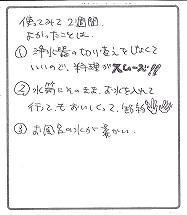 使ってみて2週間。
よかったことは、
① 浄水器の切り変えをしなくて
いいので、料理がスムーズ!!
② 水筒にそのまま、お水を入れて
行っても おいしくって、節約
③ お風呂の水が柔かい。